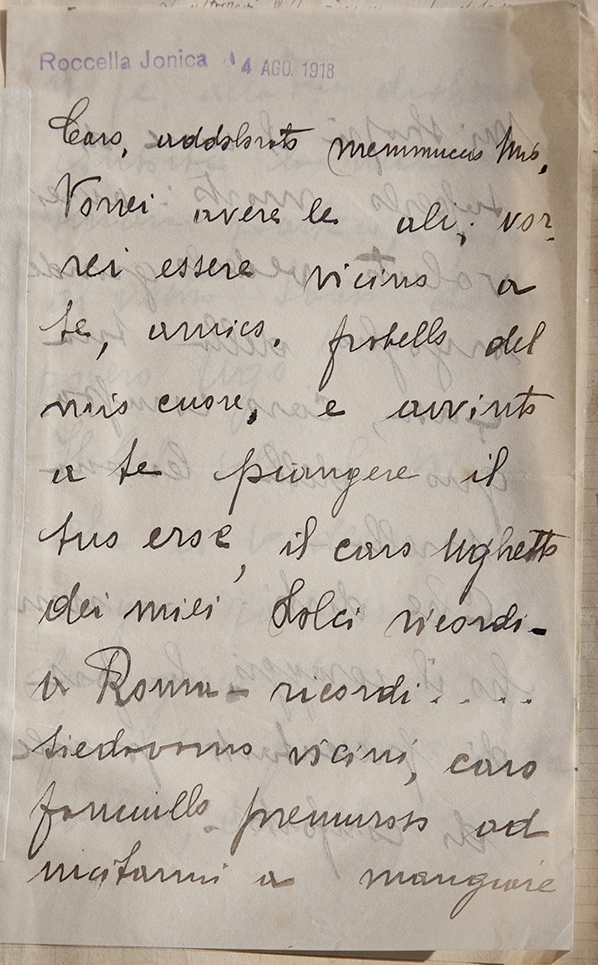 Roccella Jonica 4 AGO. 1918
Caro, addolorato memmuccio mio,
Vorrei avere le ali; vor-
rei essere vicino a
te, amico, fratello del
mio cuore, e avvinto
a te piangere il
tuo eroe, il caro Ughetto
dei miei dolci ricordi -
a Roma - ricordi . . . .
siedevamo vicini, caro
fanciullo premuroso ad
incitarmi a mangiare